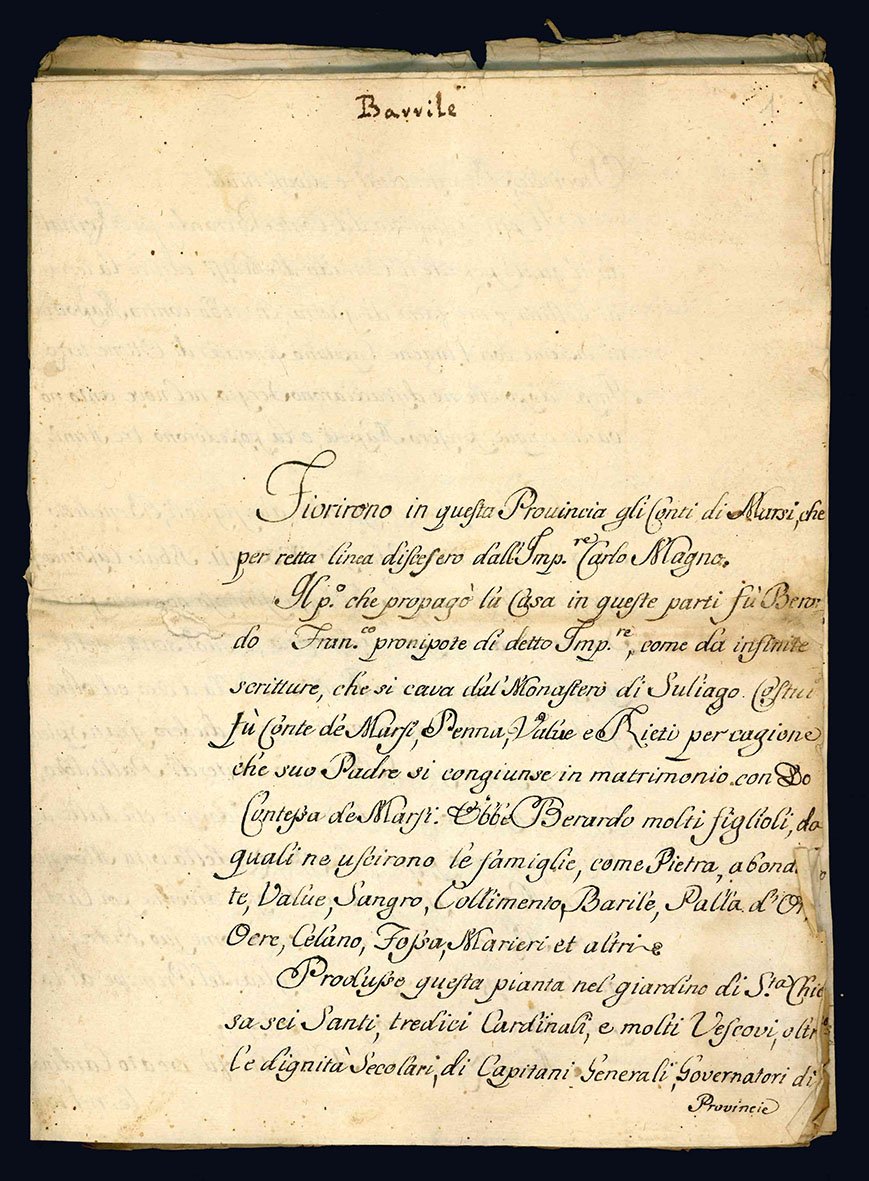 Barrile
1
Fiorirono in questa Prouincia gli Conti di Marsi, che
per retta linea discesero dall'Imp.re Carlo Magno.
Il p.o che propagò la Casa in queste parti fù Berar
do Fran.co pronipote di detto Imp.re, come da infinite
scritture, che si cava dal Monastero di Suliago. Costui
fù Conte de Marsi, Penna, Value e Rieti per cagione
che suo Padre si congiunse in matrimonio con
Contessa de Marsi. Ebbe Berardo molti figlioli, da
quali ne uscirono le famiglie, come Pietra, abond
te, Value, Sangro, Collimento, Barile, Palla. d'Or,
Ocre, Celano, Fossa, Marieri et altri
Produsse questa pianta nel giardino di S.ta Chie
sa sei Santi, tredici Cardinali, e molti Vescovi, oltre
le dignità Secolari, di Capitani Generali, Governatori di
Provincie